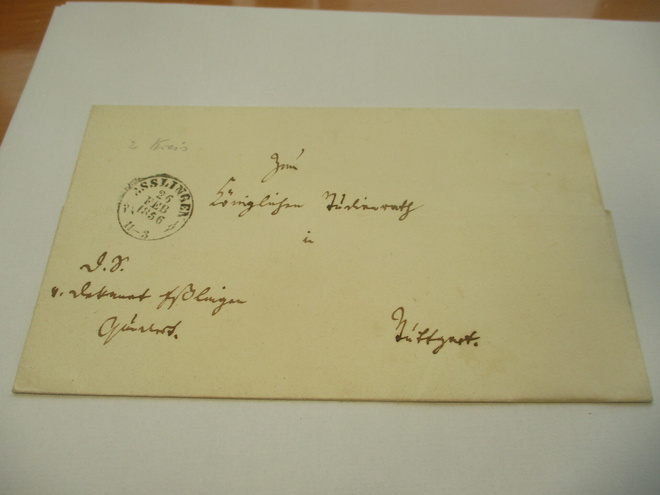 2 Kreis
ESSLINGEN
26
FEB
1856
11-3
Zum
Königlichen Studienrath
in
Stuttgart.
D. S.
v. Dekanat Eßlingen